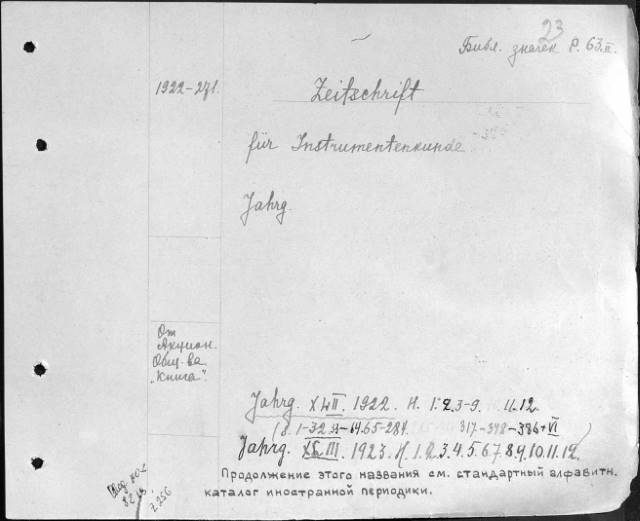 23
Библ. значек Р. 63.II.
1922-271.
Zeitschrift
für Instrumentenkunde
Jahrg.
От
Акцион.
Общ-ва
„Книга".
Jahrg. XLII. 1922. H. 1.2.3-9. 11.12
317-348-386+VI
Jahrg. XLIII. 1923. H. 1.2.3.4.5.6.7.8.9.10.11.12.
Продолжение этого названия см. стандартный алфавитн.
каталог иностранной периодики.